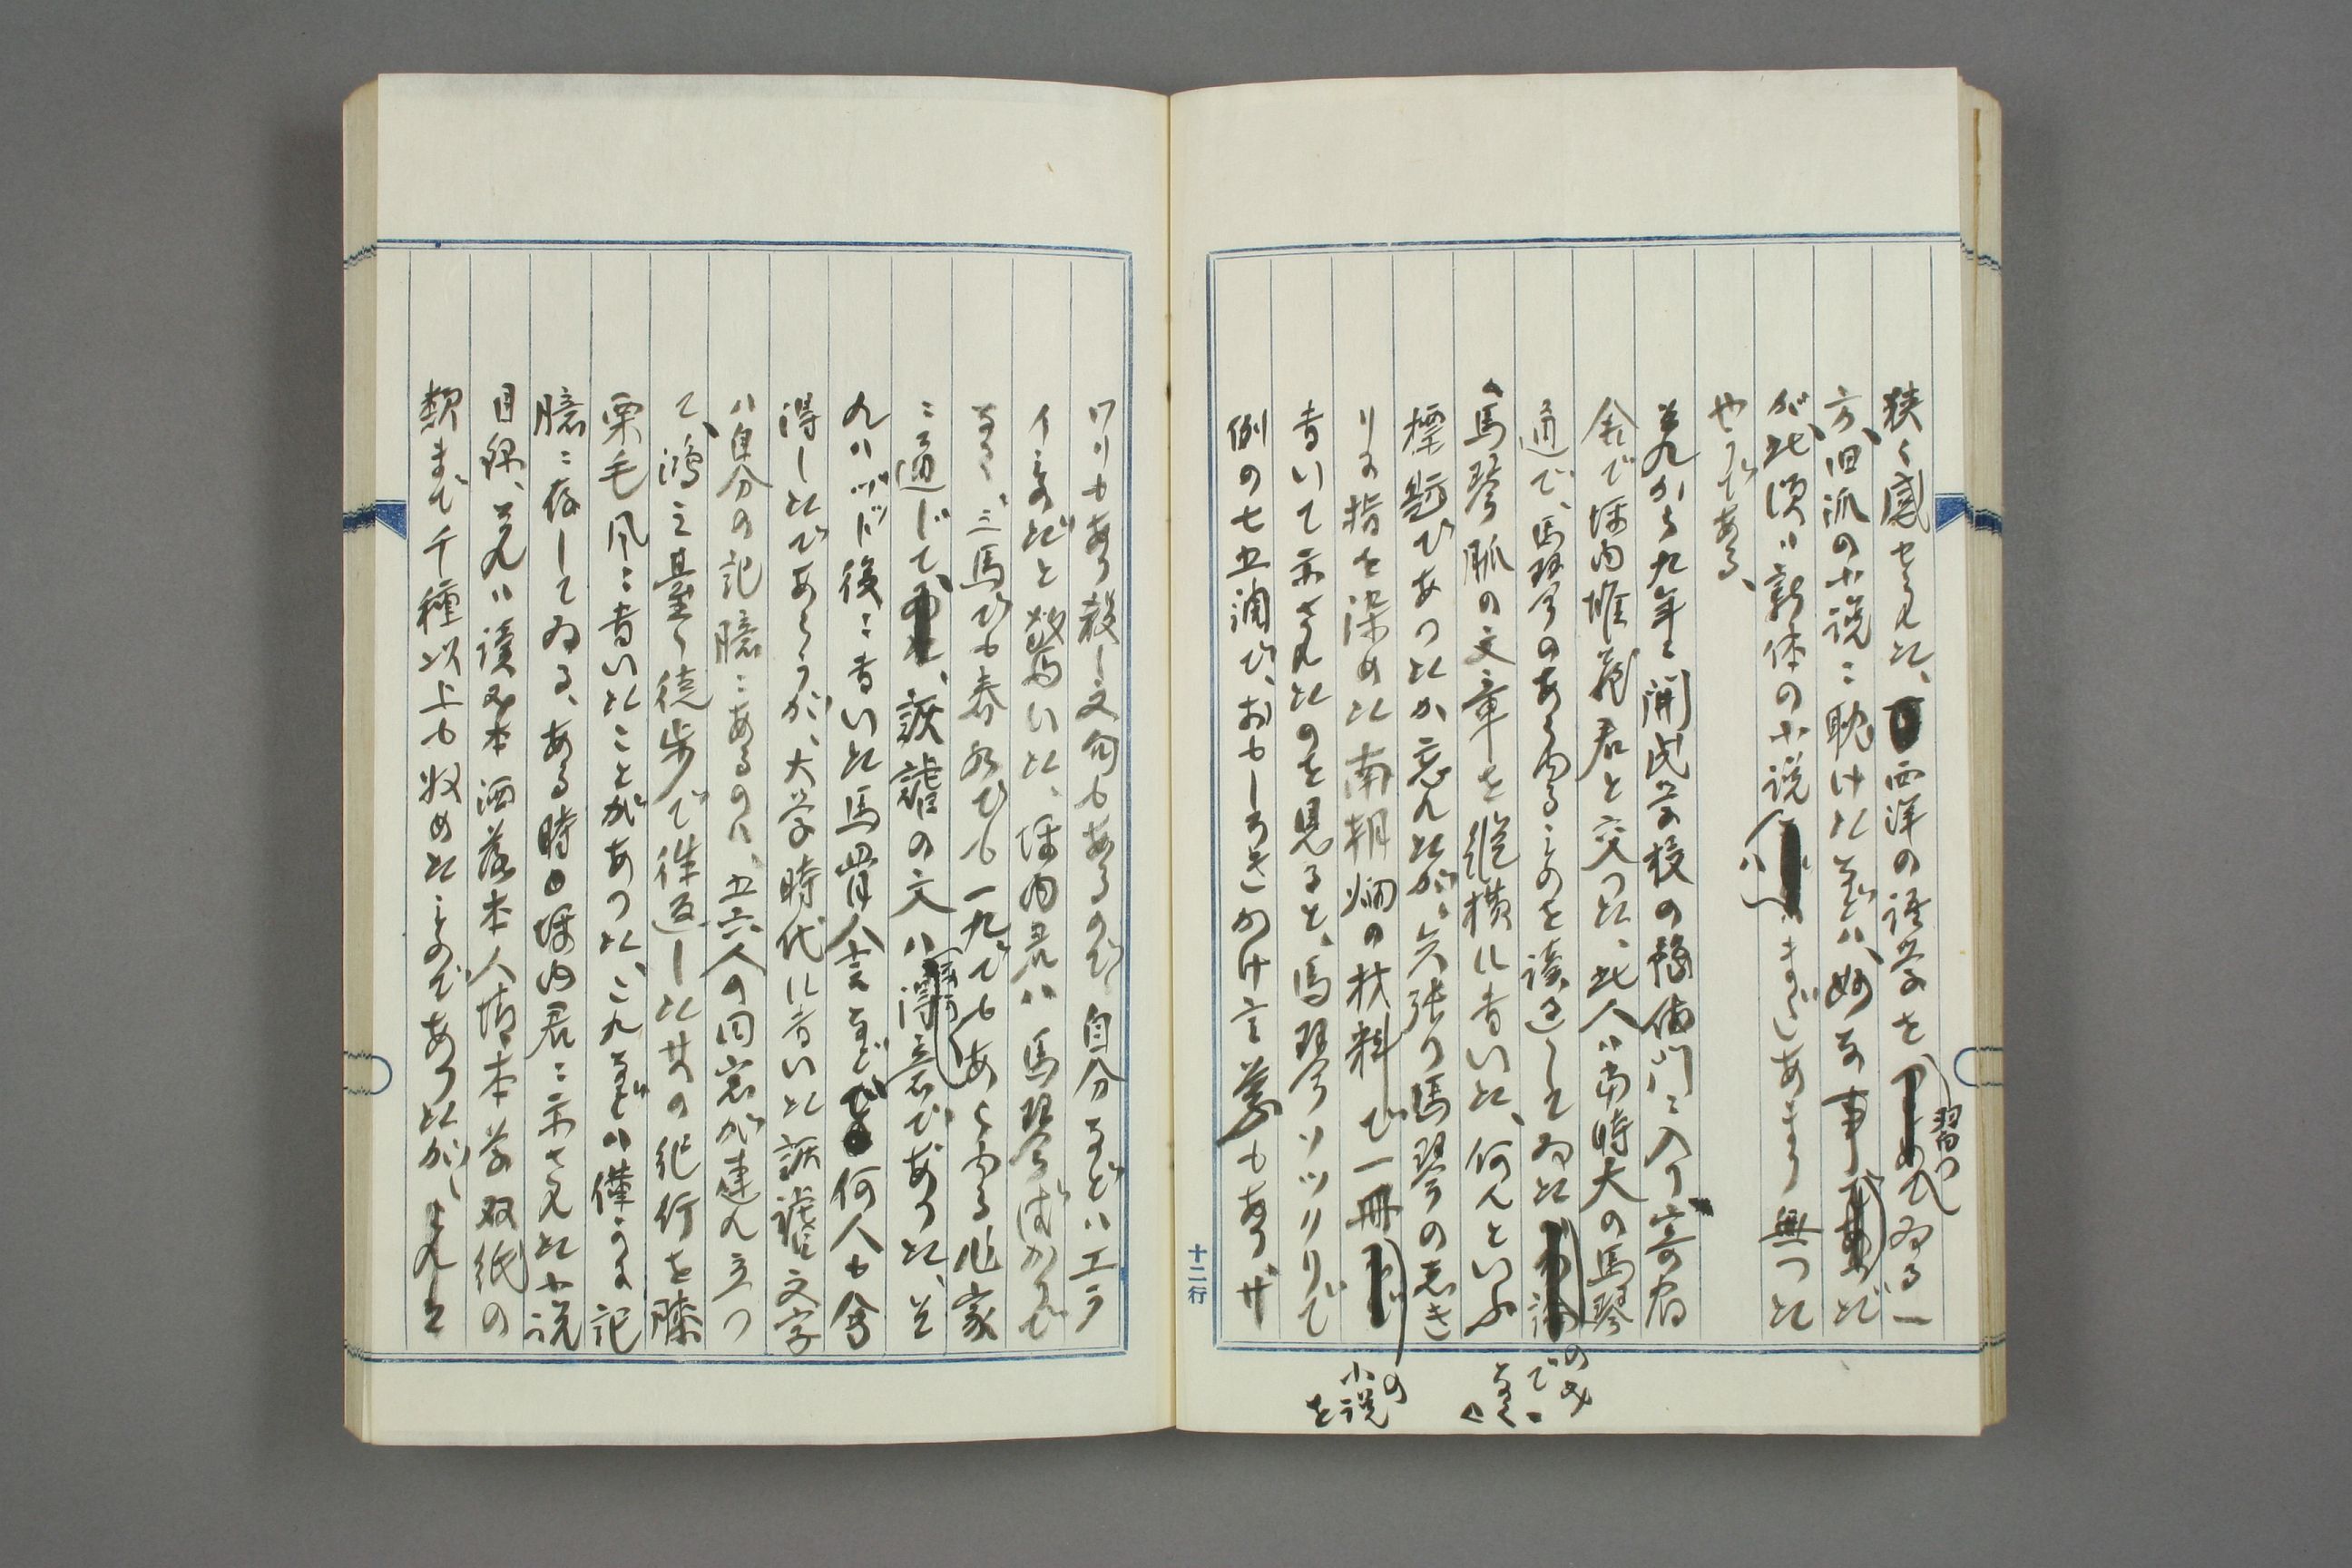 狭く感せられ、西洋の語学を習つてゐる一
方、旧派の小説に耽けれバ、妙な事だ
が、此頃ハ新体の小説ハまだあまり無つた
やうである、
それから九年に開成学校の予備門に入り寄宿
舎で坪内雄蔵君と交つた、此人ハ当時大の馬琴
通で、馬琴のあらゆるものを読過してゐたのみでなく
馬琴脈の文章を縦横に書いた、何んといふ
標題であつたか忘れたが、矢張り馬琴の志き
りに指を染めた南朝の材料で一冊の小説を
書いて示されたのを見ると、馬琴ソツクリで
例の七五調で、おもしろきかけ言葉もあり、サ
ワリもあり殺し文句もあるので自分などハエラ
イものだと驚いた、坪内君ハ馬琴ばかりで
なく、三馬でも春水でも一九でもあらゆる作家
に通じて、諧謔の文ハ得意であつた、そ
れハズツト後に書いた馬骨人言など何人も會
得したであらうが、大学時代に書いた諧謔文字
ハ自分の記臆にあるのハ、五六人の同窓が連れ立つ
て、鴻之臺へ徒歩で往返した其の紀行を膝
栗毛風に書いたことがあつた、これなどハ僅かに記
臆に存してゐる、ある時坪内君に示された小説
目録、それハ読本洒落本人情本草双紙の
類まで千種以上も収めたものであつたが、
十二行